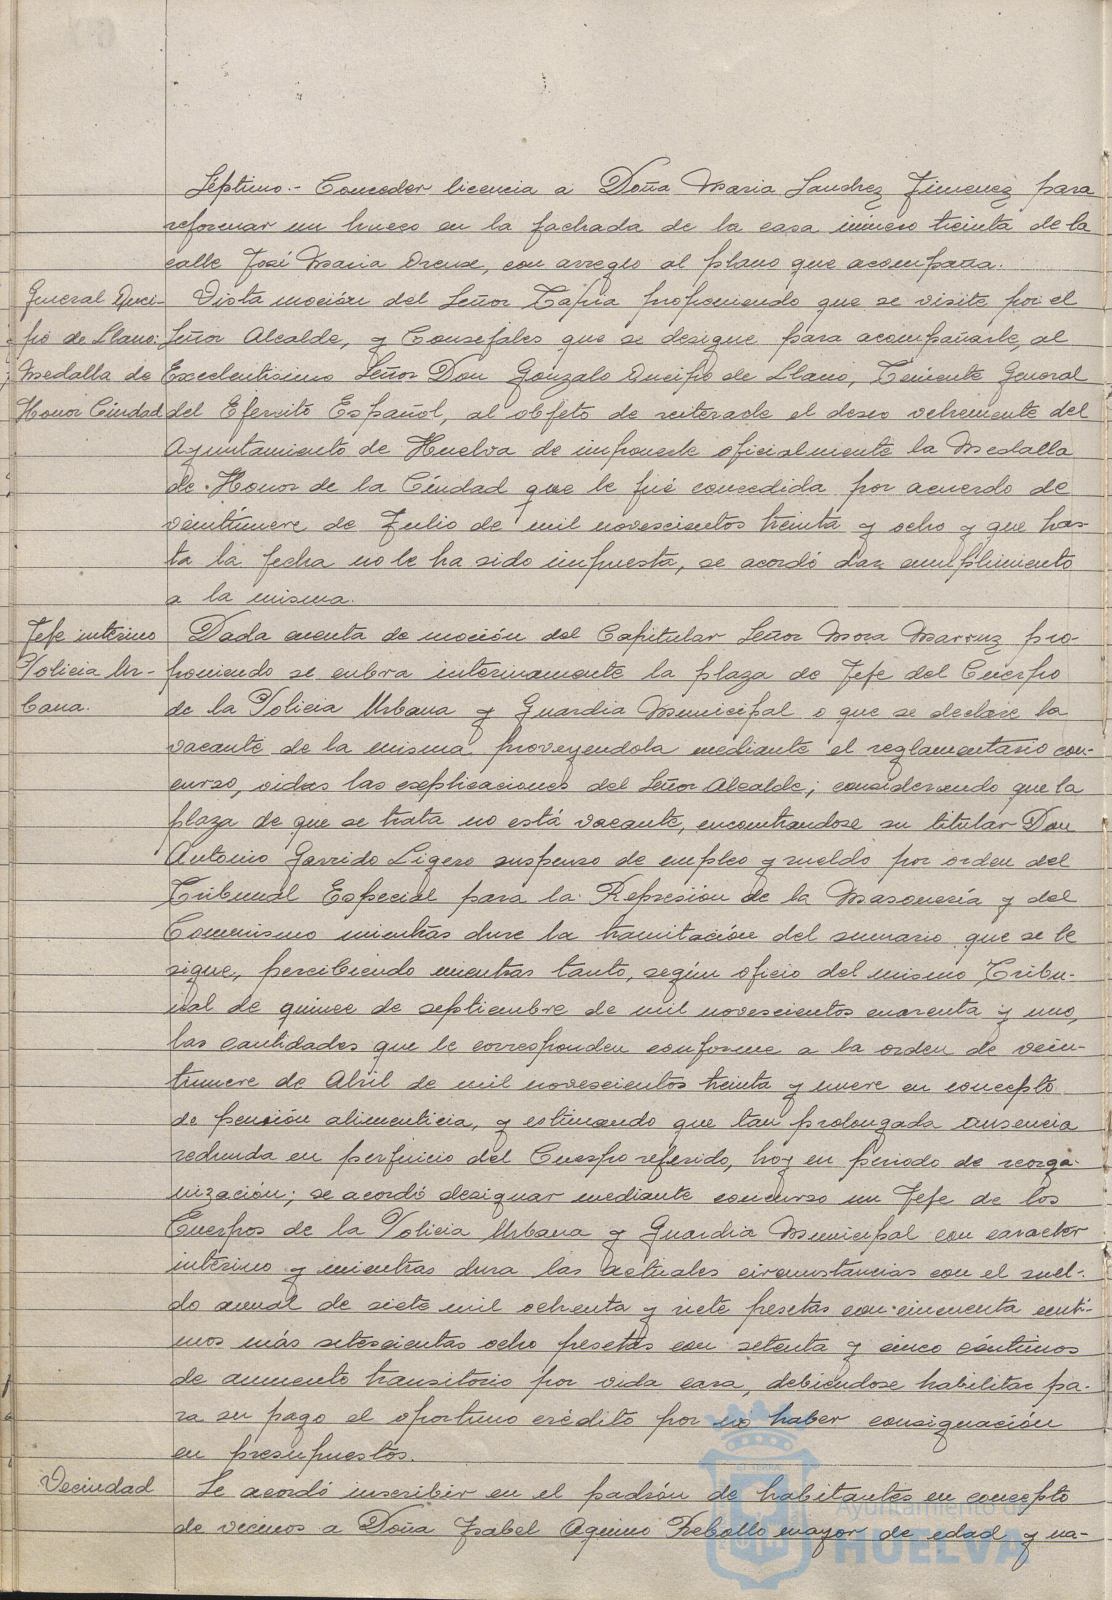 Séptimo.- Conceder licencia a Doña Maria Sanchez Jimenez para
reformar un hueco en la fachada de la casa número treinta de la
calle José Maria Orense, con arreglo al plano que acompaña.
General Quei-
po de Llano:
Medalla de
Honor Ciudad
Vista moción del Señor Tapia proponiendo que se visite por el
Señor Alcalde, y Concejales que se designe para acompañarle, al
Excelentisimo Señor Don Gonzalo Queipo de Llano, Teniente General
del Ejercito Español, al objeto de reiterarle el deseo vehemente del
Ayuntamiento de Huelva de imponerle oficialmente la Medalla
de Honor de la Ciudad que le fué concedida por acuerdo de
veintinueve de Julio de mil novescientos treinta y ocho y que has-
ta la fecha no le ha sido impuesta, se acordó dar cumplimiento
a la misma.
Jefe interino
Policia Ur-
bana.
Dada cuenta de moción del Capitular Señor Mora Marruz pro-
poniendo se cubra interinamente la plaza de Jefe del Cuerpo
de la Policia Urbana y Guardia Municipal o que se declare la
vacante de la misma proveyendola mediante el reglamentario con-
curso, oidas las explicaciones del Señor Alcalde; considerando que la
plaza de que se trata no está vacante, encontrandose su titular Don
Antonio Garrido Ligero suspenso de empleo y sueldo por orden del
Tribunal Especial para la Represión de la Masonería y del
Comunismo mientras dure la tramitación del sumario que se le
sigue, percibiendo mientras tanto, según oficio del mismo Tribu-
nal de quince de septiembre de mil novescientos cuarenta y uno,
las cantidades que le corresponden conforme a la orden de vein-
tinueve de Abril de mil novescientos treinta y nueve en concepto
de pensión alimenticia, y estimando que tan prolongada ausencia
redunda en perjuicio del Cuerpo referido, hoy en periodo de reorga-
nización; se acordó designar mediante concurso un Jefe de los
Cuerpos de la Policia Urbana y Guardia Municipal con caracter
interino y mientras dura las actuales circunstancias con el suel-
do anual de siete mil ochenta y siete pesetas con cincuenta centi-
mos más setescientas ocho pesetas con setenta y cinco céntimos
de aumento transitorio por vida cara, debiendose habilitar pa-
ra su pago el oportuno crédito por no haber consignación
en presupuestos.
Vecindad
Se acordó inscribir en el padrón de habitantes en concepto
de vecinos a Doña Isabel Aquino Rebollo mayor de edad y na-
Ayuntamiento de
HUELVA